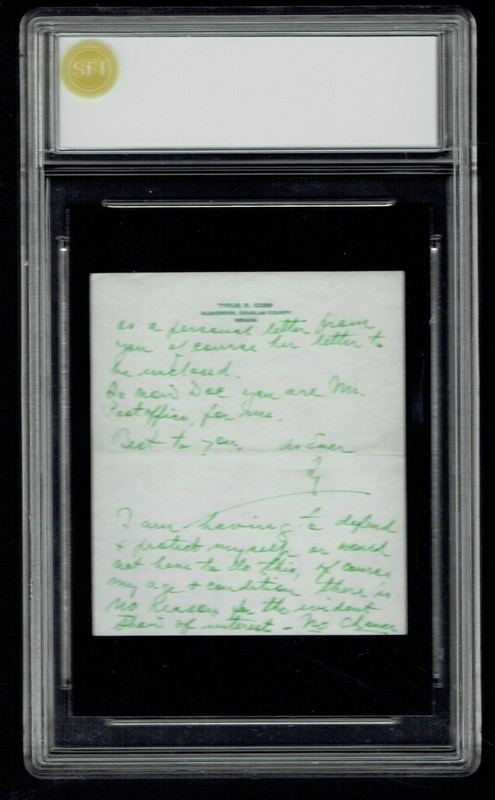 SFI
TYRUS R. COBB
GLENBROOK, DOUGLAS COUNTY
NEVADA
as a personal letter from
you of course her letter to
be inclosed.
So now Doc you are Mr.
Postoffice, for me.
Best to you. as ever
Ty
I am having to defend
& protect myself or would
not have to do this, of course
my age & condition there is
no reason for the evident
show of interest - No Chance